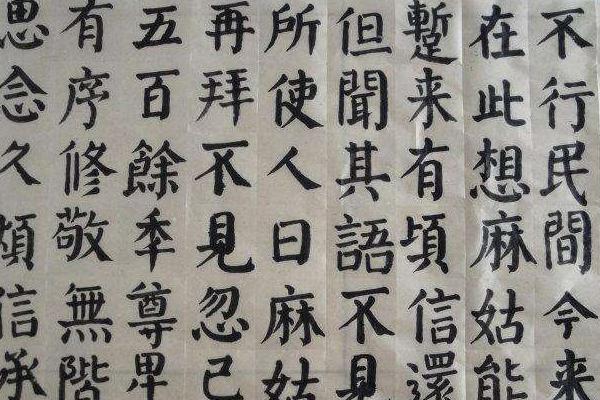 不行民間今来
在此想麻姑能
蹔来有頃信還
但聞其語不見
所使人曰麻姑
再拜不見忽已
五百餘秊尊卑
有序修敬無階
思念久煩信承